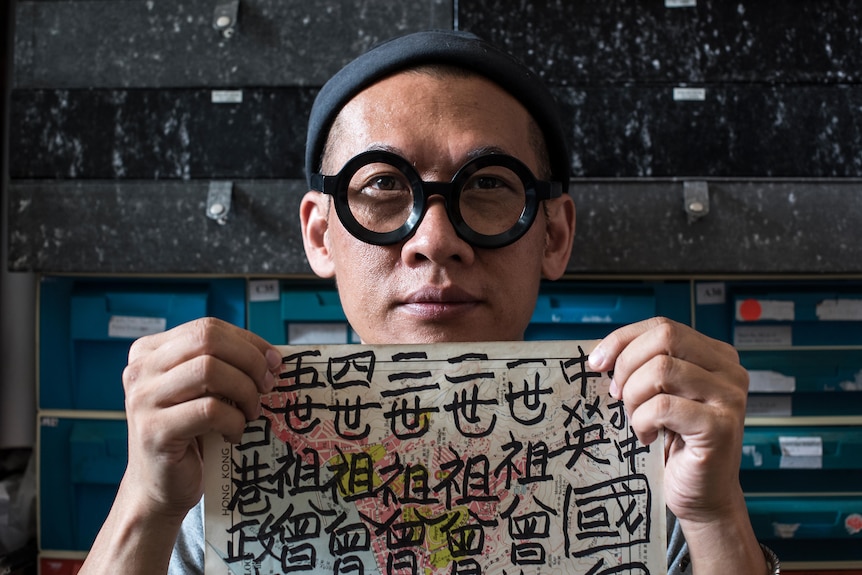 中英
國
一世祖曾
二世祖曾
三世祖曾
四世祖曾
五世祖曾
香港政
HONG KONG